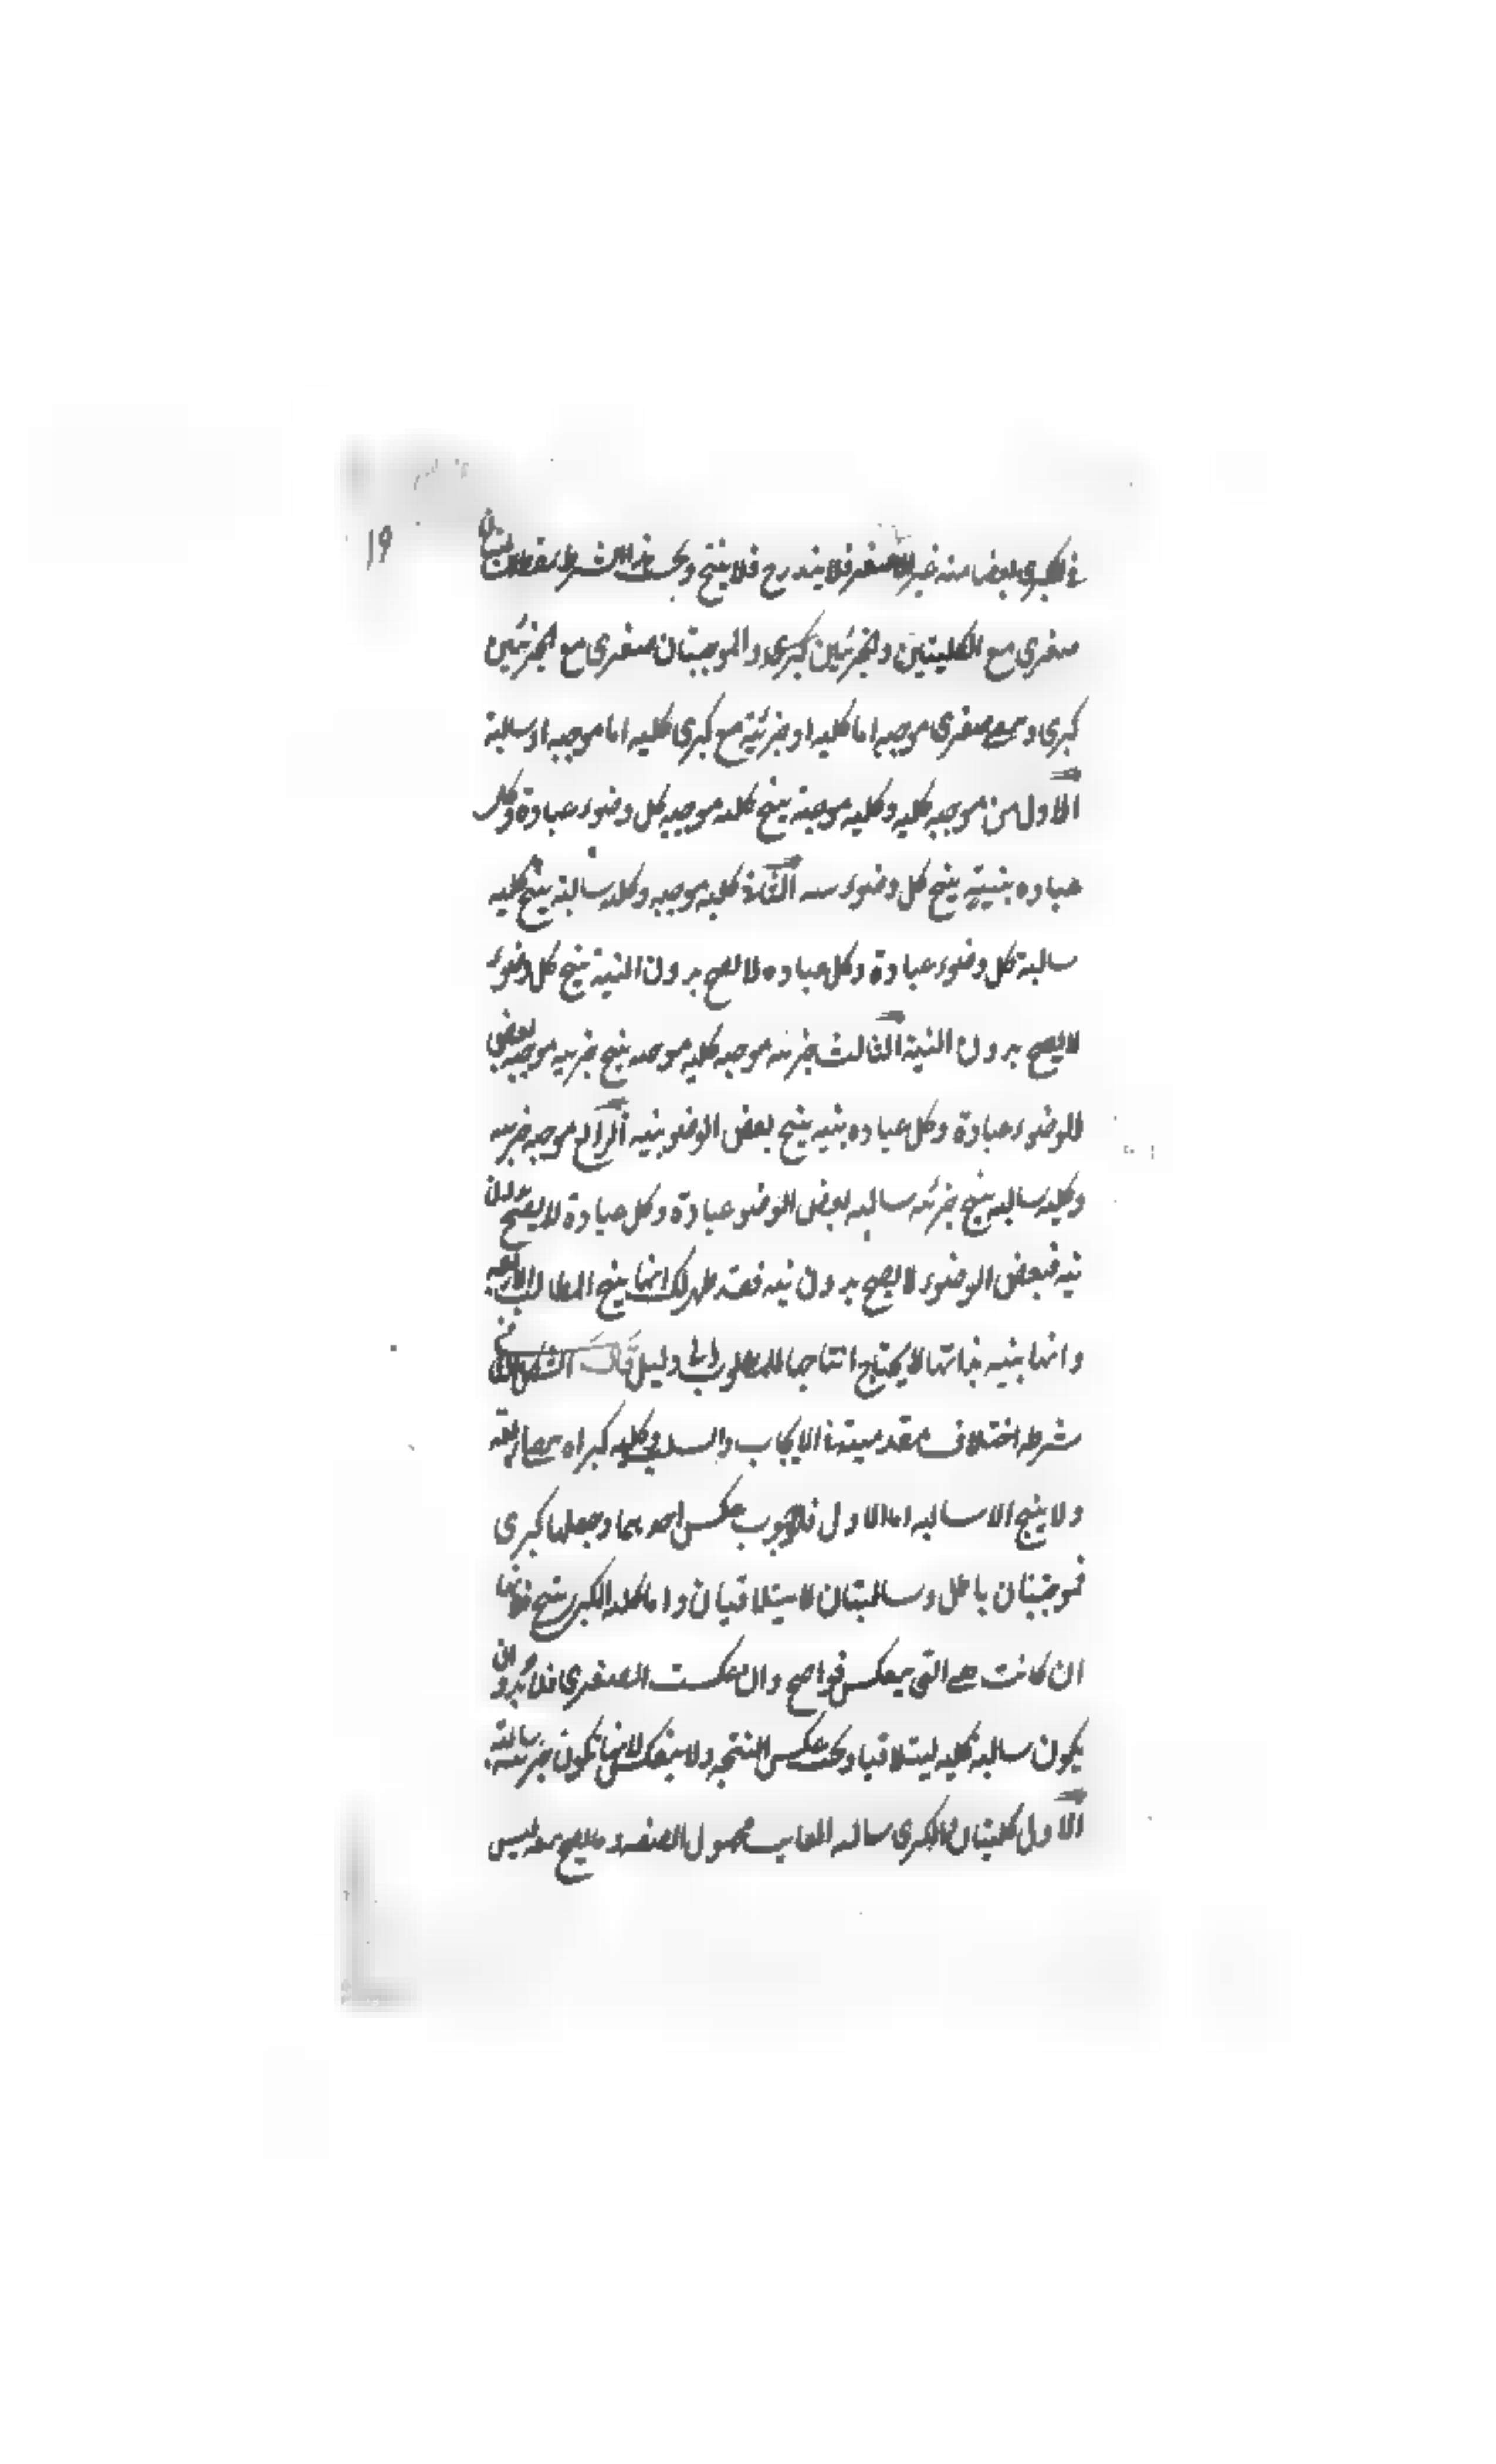 ١٩
في الكبرى بعضا منه غير الاصغر فلا يندرج فلا ينتج وبحسب هذا الشرط يسقط السالبتان
صغرى مع الكليتين والجزئيتين كبرى والموجبتان صغرى مع الجزئيتين
كبرى و صغرى موجبه اما كليه او جزئية مع كبرى كليه اما موجبه او سالبة
الاول من موجبه كليه وكليه موجبة ينتج كليه موجبه كل وضوء عبادة وكل
عباده بنية ينتج كل وضوء بنيه الثاني كليه موجبه وكليه سالبة ينتج كليه
سالبة كل وضوء عبادة وكل عباده لا تصح بدون النية ينتج كل وضوء
لا يصح بدون النية الثالث جزئيه موجبه كليه موجبه ينتج جزئيه موجبه بعض
الوضوء عبادة وكل عباده بنيه ينتج بعض الوضو بنيه الرابع موجبه جزئيه
وكليه سالبه ينتج جزئيه سالبه بعض الوضو عبادة وكل عبادة لا يصح بدون
نيه فبعض الوضوء لا يصح بدون نيه فقد ظهر لك انها ينتج المطالب الاربعه
وانها بنيه بذاتها لا يحتاج انتاجها للمطلوب الى دليل قال الشكل الثاني
شرطه اختلاف مقدمتيه في الايجاب والسلب وكليه كبراه
ولا ينتج الا سالبه اما الاول فلوجوب عكس احديهما وجعلها كبرى
فموجبتان باطل وسالبتان لا يتلاقيان واما كليه الكبرى فلانها
ان كانت هي التي ينعكس فواضح وان عكست الصغرى فلا بد وان
يكون سالبه كليه ليتلاقيا ويجب عكس النتيجه ولا ينعكس لانها تكون جزئيه سالبة
الاول كليتان والكبرى سالبه الغايب مجهول الصفه وما يصح بيعه ليس